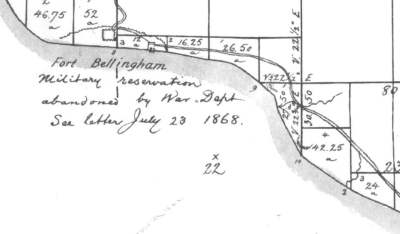 46.75
a
52
a
3
12
a
2
16.25
a
1
26.50
a
Fort Bellingham
Military reservation
abandoned by War. Dept
See letter July 23 1868.
x
22
9
V 22½° E
80
4
42.25
a
3
2
24
a